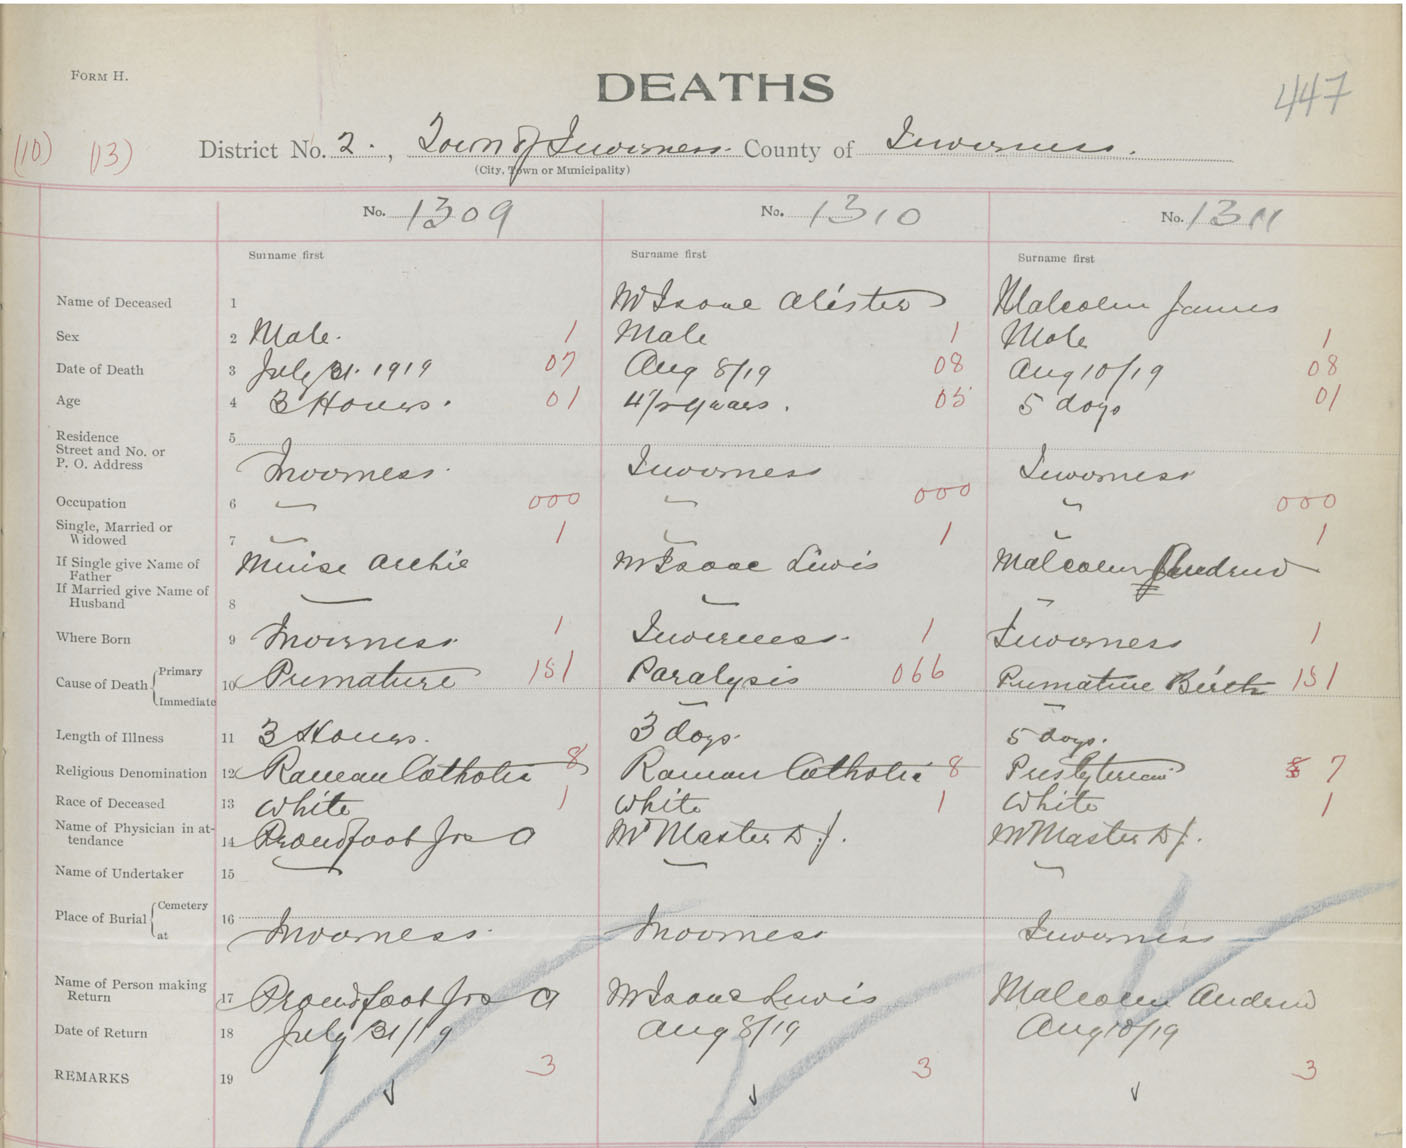 FORM H.
DEATHS
447
(10) (13)
District No. 2. , Town of Inverness. County of Inverness.
(City, Town or Municipality)
No. 1309 No. 1310 No. 1311
Surname first Surname first Surname first
Name of Deceased 1 McIsaac Alister Malcolm James
Sex 2 Male. 1 Male 1 Male 1
Date of Death 3 July 31. 1919 07 Aug 8/19 08 Aug 10/19 08
Age 4 3 Hours. 01 4 1/2 years. 05 5 days 01
Residence 5
Street and No. or
P. O. Address Inverness. Inverness Inverness
Occupation 6 000 000 000
Single, Married or
Widowed 7 1 1 1
If Single give Name of
Father Muise Archie McIsaac Lewis Malcolm Andrew
If Married give Name of
Husband 8
Where Born 9 Inverness 1 Inverness. 1 Inverness 1
Cause of Death { Primary 10 Premature 151 Paralysis 066 Premature Birth 151
Immediate
Length of Illness 11 3 Hours. 3 days. 5 days.
Religious Denomination 12 Roman Catholic 8 Roman Catholic 8 Presbyterian 7
Race of Deceased 13 White 1 White 1 White 1
Name of Physician in at-
tendance 14 Proudfoot Jas A McMaster D J. McMaster D J.
Name of Undertaker 15
Place of Burial { Cemetery 16
at Inverness. Inverness Inverness
Name of Person making
Return 17 Proudfoot Jas A McIsaac Lewis Malcolm Andrew
Date of Return 18 July 31/19 Aug 8/19 Aug 10/19
REMARKS 19 3 3 3